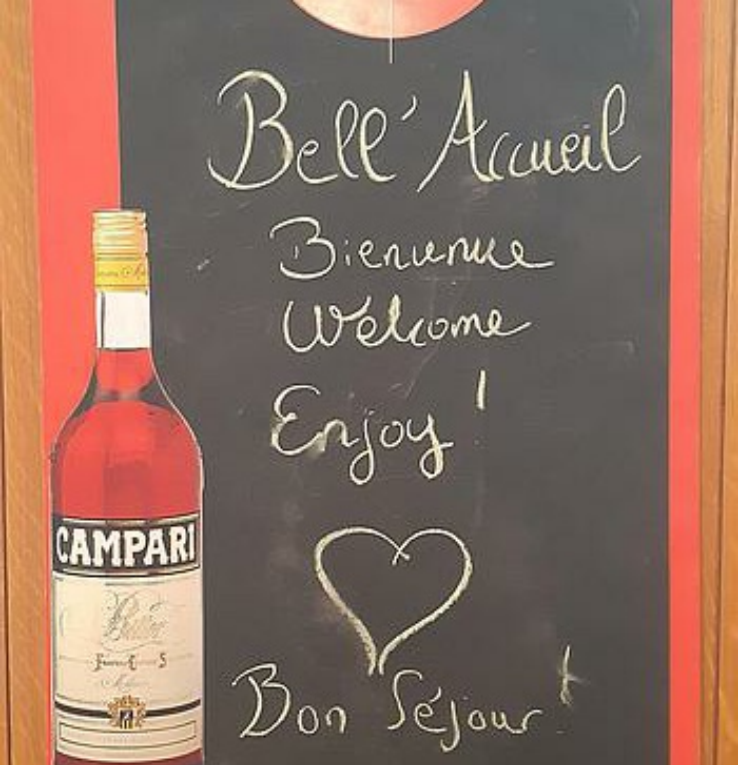 Bell'Accueil
Bienvenue
Welcome
Enjoy !
Bon Séjour !
CAMPARI
Bitter
Milano